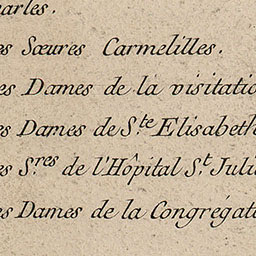 harles.
es Sœures Carmelilles.
es Dames de la visitatio
es Dames de S.te Elisabeth
es S.res de l'Hôpital S.t Juli
es Dames de la Congrégat